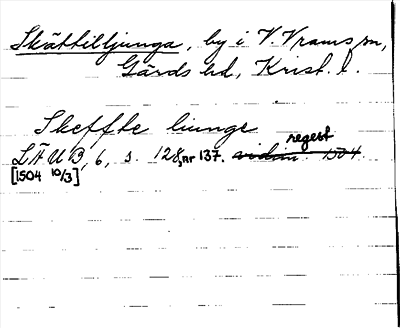 Skättilljunga, by i V. Vrams sn,
Gärds hd, Krist. l.
Skeffte liunge
regest
LÄUB, 6, s. 128, nr 137. vidim. 1504
[1504 10/3]